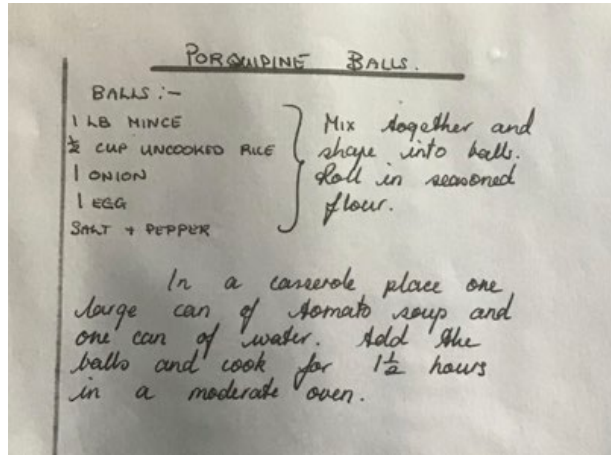 PORQUIPINE BALLS.
BALLS :-
1 LB MINCE
½ CUP UNCOOKED RICE
1 ONION
1 EGG
SALT + PEPPER
Mix together and
shape into balls.
Roll in seasoned
flour.
In a casserole place one
large can of tomato soup and
one can of water. Add the
balls and cook for 1½ hours
in a moderate oven.